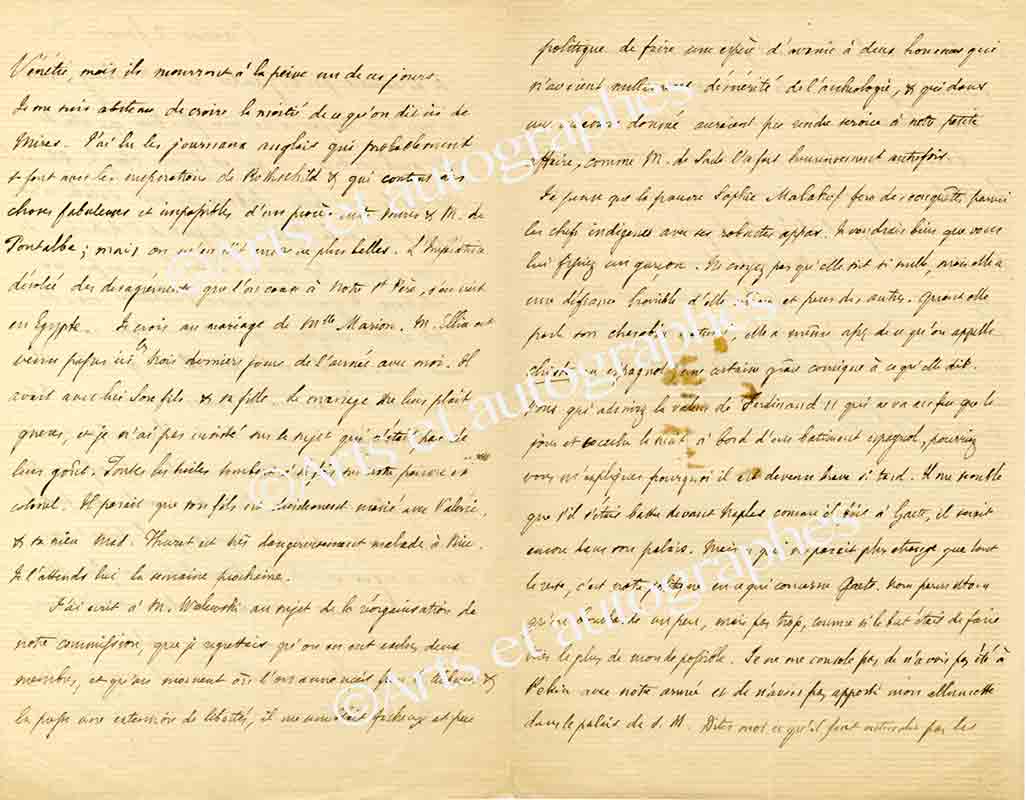 Vénétie, mais ils mourront à la peine un de ces jours.
Je me suis abstenu de croire la moitié de ce qu'on dit ici de
Mires. J'ai lu les journaux anglais qui probablement
st fort avec les inspirations de Rothschild & qui content des
choses fabuleuses et impossibles d'un procès entre Mires & M. de
Pontalba; mais on m'en dit encore de plus belles. L'Impératrice
désolée des désagréments que l'on cause à Notre St Père, s'en veut
en Egypte. Je crois au mariage de Mlle Marion. M. Ellice est
venu passer ici les trois derniers jours de l'année avec moi. Il
avait avec lui son fils & sa fille. Le mariage ne leur plaît
guères, et je n'ai pas insisté sur le sujet qui n'était pas de
leur goût. Toutes les tuiles tombent sur notre pauvre ex
colonel. Il paraît que son fils est décidément marié avec Valérie,
& sa nièce Mad. Thuret est très dangereusement malade à Nice.
Je l'attends lui la semaine prochaine.
J'ai écrit à M. Walewski au sujet de la réorganisation de
notre commission, que je regrettais qu'on en eût exclu deux
membres, et qu'au moment où l'on annonçait &
la presse une extension de liberté, il me semblait fâcheux et peu
politique de faire une espèce d'avanie à deux hommes qui
n'avaient nullement démérité de l'archéologie, & qui dans
un moment donné auraient pu rendre service à notre petite
affaire, comme M. de Sade l'a fait heureusement autrefois.
Je pense que la pauvre Sophie Malakof fera des conquêtes parmi
les chefs indigènes avec ses robustes appas. Je voudrais bien que vous
lui fissiez un garçon. Ne croyez pas qu'elle soit si nulle, mais elle a
une défiance horrible d'elle même et peur des autres. Quand elle
parle son charabia naturel, elle a même assez de ce qu'on appelle
chiste en espagnol, une certaine grâce comique à ce qu'elle dit.
Vous qui admirez la valeur de Ferdinand II qui va au feu que le
jour et couche la nuit à bord d'un bâtiment espagnol, pourriez
vous m'expliquer pourquoi il est devenu brave si tard. Il me semble
que s'il s'était battu devant Naples comme il fait à Gaete, il serait
encore dans son palais. Mais ce qui me paraît plus étrange que tout
le reste, c'est notre politique en ce qui concerne Gaete. Nous permettons
qu'on bombarde un peu, mais pas trop, comme si le but était de faire
tuer le plus de monde possible. Je ne me console pas de n'avoir pas été à
Pekin avec notre armée et de n'avoir pas apporté mon allumette
dans le palais de S. M. Dites moi ce qu'il faut entendre par les
©Arts et autographes
©Arts et autographes
©Arts et autographes